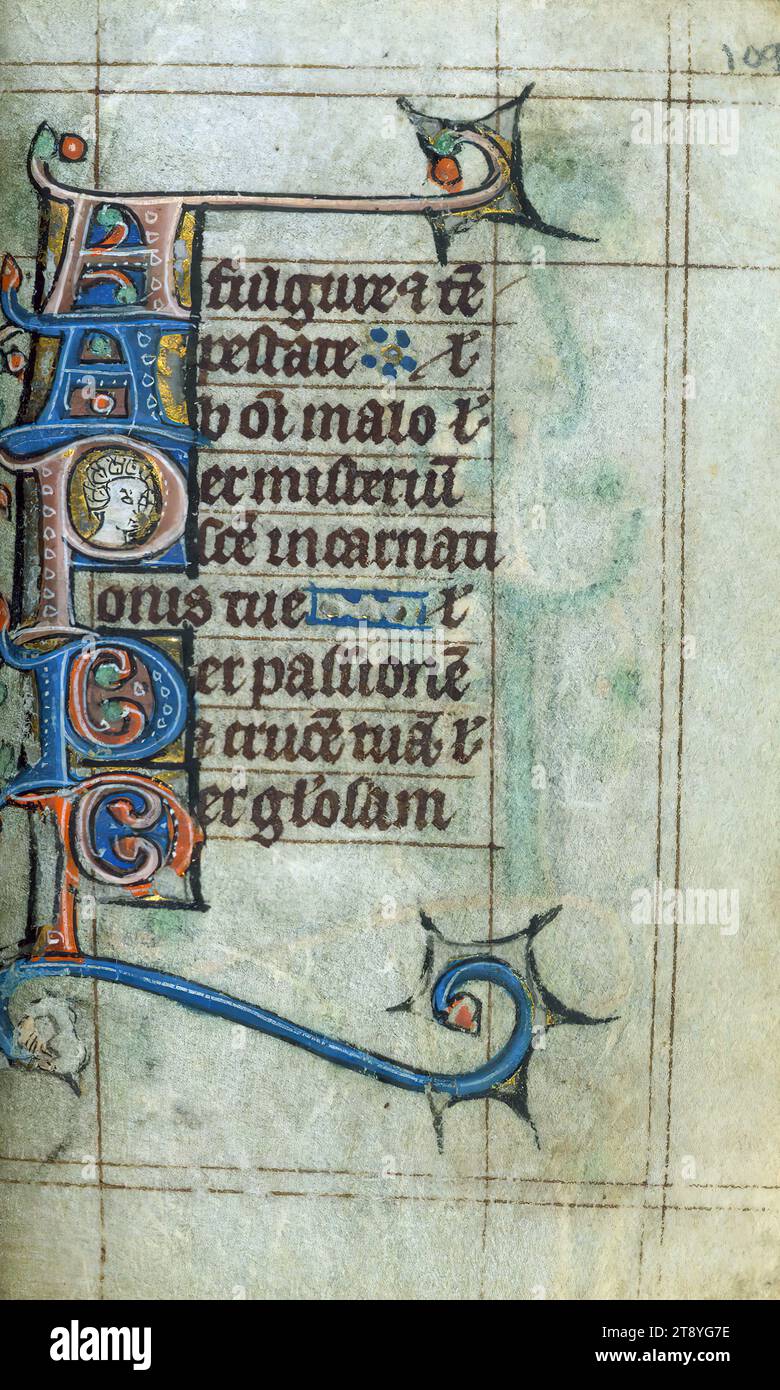 109
A fulgure ⁊ tē
pestate ł
Ab oī malo ł
Per misteriū
scē incarnati
onis tue ł
Per passionē
⁊ crucē tuā ł
Per głosam
alamy
alamy
Image ID: 2T8YG7E
www.alamy.com